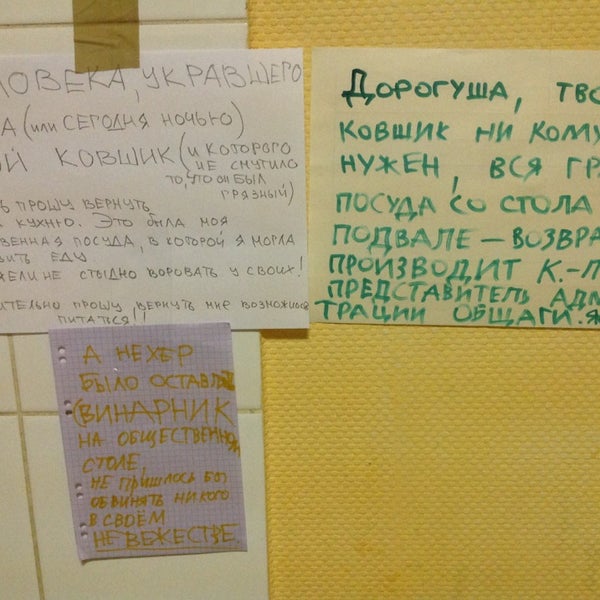 ЛОВЕКА, УКРАВШЕГО
А (ИЛИ СЕГОДНЯ НОЧЬЮ)
ОЙ КОВШИК (И КОТОРОГО
НЕ СМУТИЛО
ТО, ЧТО ОН БЫЛ
ГРЯЗНЫЙ)
Ь ПРОШУ ВЕРНУТЬ
КУХНЮ. ЭТО БЫЛА МОЯ
ВЕННАЯ ПОСУДА, В КОТОРОЙ Я МОГЛА
ВИТЬ ЕДУ
ЖЕЛИ НЕ СТЫДНО ВОРОВАТЬ У СВОИХ!
ИТЕЛЬНО ПРОШУ ВЕРНУТЬ МНЕ ВОЗМОЖНОСТЬ
ПИТАТЬСЯ!!
А НЕХЕР
БЫЛО ОСТАВЛЯТЬ
(ВИНАРНИК
НА ОБЩЕСТВЕННОМ
СТОЛЕ,
НЕ ПРИШЛОСЬ БЫ
ОБВИНЯТЬ НИКОГО
В СВОЁМ
НЕВЕЖЕСТВЕ.
ДОРОГУША, ТВО
КОВШИК НИ КОМУ
НУЖЕН, ВСЯ ГР
ПОСУДА СО СТОЛА
ПОДВАЛЕ — ВОЗВРА
ПРОИЗВОДИТ К.-Л
ПРЕДСТАВИТЕЛЬ АДМ
ТРАЦИИ ОБЩАГИ.